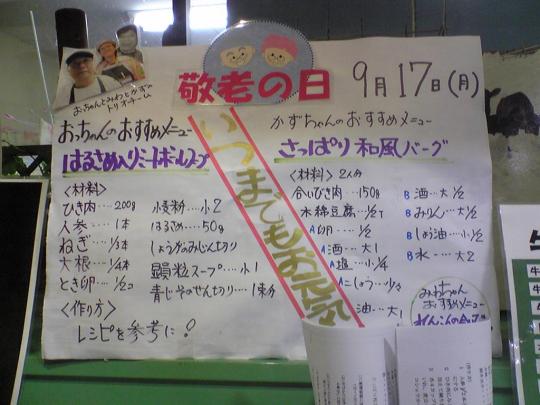 敬老の日
9月17日(月)
おっちゃんとみわとかずの
トリオチーム
いつまでもお元気
おっちゃんのおすすめメニュー
はるさめ入りミートボールスープ
<材料>
ひき肉…200g
人参…1本
ねぎ…1/3本
大根…1/4本
とき卵…1/2コ
小麦粉…小2
はるさめ…50g
しょうがのみじん切り
顆粒スープ…小1
青じそのせん切り…1束分
<作り方>
レシピを参考に!
かずちゃんのおすすめメニュー
さっぱり和風バーグ
<材料>2人分
合いびき肉…150g
木綿豆腐…1/2丁
A卵…1/2
A酒…大1
A塩…小1/4
Aこしょう…小1/3
油…大1
B酒…大1/2
Bみりん…大1/2
Bしょう油…小1/2
B水…大2
みわちゃん
おすすめメニュー